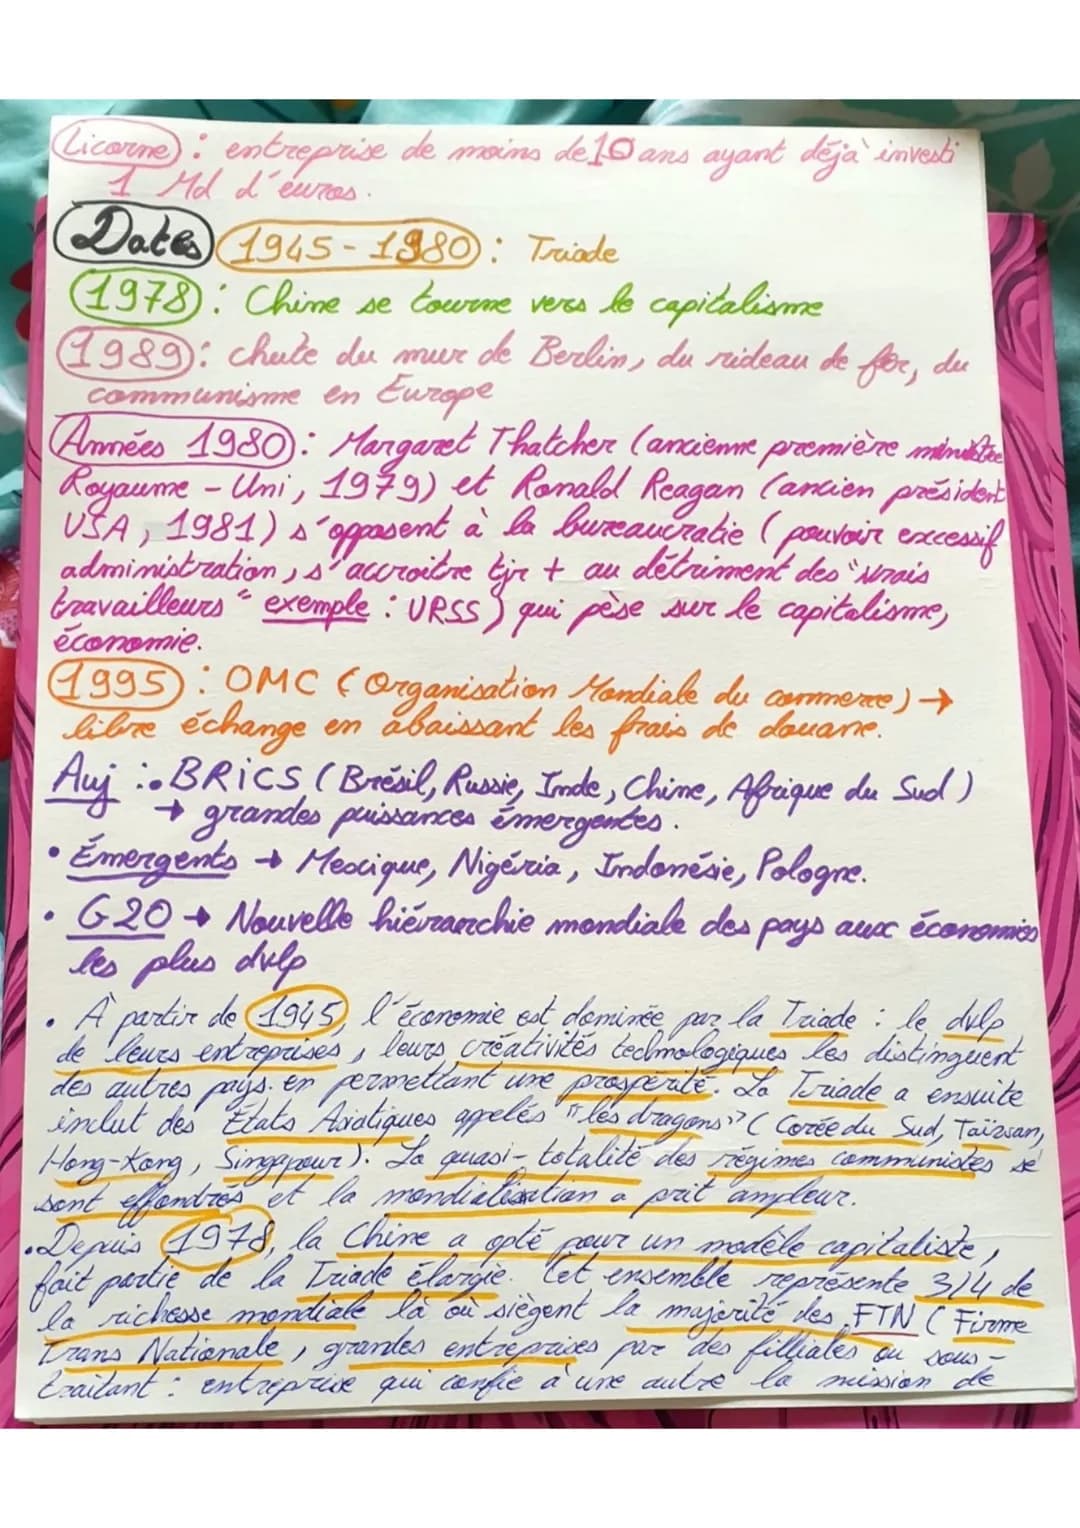 Licorne : entreprise de moins de 10 ans ayant déjà investi
1 Md d'euros.
Dates 1945-1980 : Triade
1978 : Chine se tourne vers le capitalisme
1989 : chute du mur de Berlin, du rideau de fer, du
communisme en Europe
Années 1980 : Margaret Thatcher (ancienne première ministre
Royaume-Uni, 1979) et Ronald Reagan (ancien président
USA, 1981) s'opposent à la bureaucratie (pouvoir excessif
administration, s'accroitre tjr + au détriment des "vrais
travailleurs" exemple : URSS) qui pèse sur le capitalisme,
économie.
1995 : OMC (Organisation Mondiale du commerce) →
libre échange en abaissant les frais de douane.
Auj : • BRICS (Brésil, Russie, Inde, Chine, Afrique du Sud)
→ grandes puissances émergentes.
• Émergents → Mexique, Nigéria, Indonésie, Pologne.
• G20 → Nouvelle hiérarchie mondiale des pays aux économies
les plus dvlp
• À partir de 1945, l'économie est dominée par la Triade : le dvlp
de leurs entreprises, leurs créativités technologiques les distinguent
des autres pays. en permettant une prospérité. La Triade a ensuite
inclut des États Asiatiques appelés "les dragons" (Corée du Sud, Taïwan,
Hong-Kong, Singapour). La quasi-totalité des régimes communistes se
sont effondrés et la mondialisation a prit ampleur.
• Depuis 1978, la Chine a opté pour un modèle capitaliste,
fait partie de la Triade élargie. Cet ensemble représente 3/4 de
la richesse mondiale là où siègent la majorité des FTN (Firme
Trans Nationale, grandes entreprises par des filliales ou sous-
traitant : entreprise qui confie à une autre la mission de